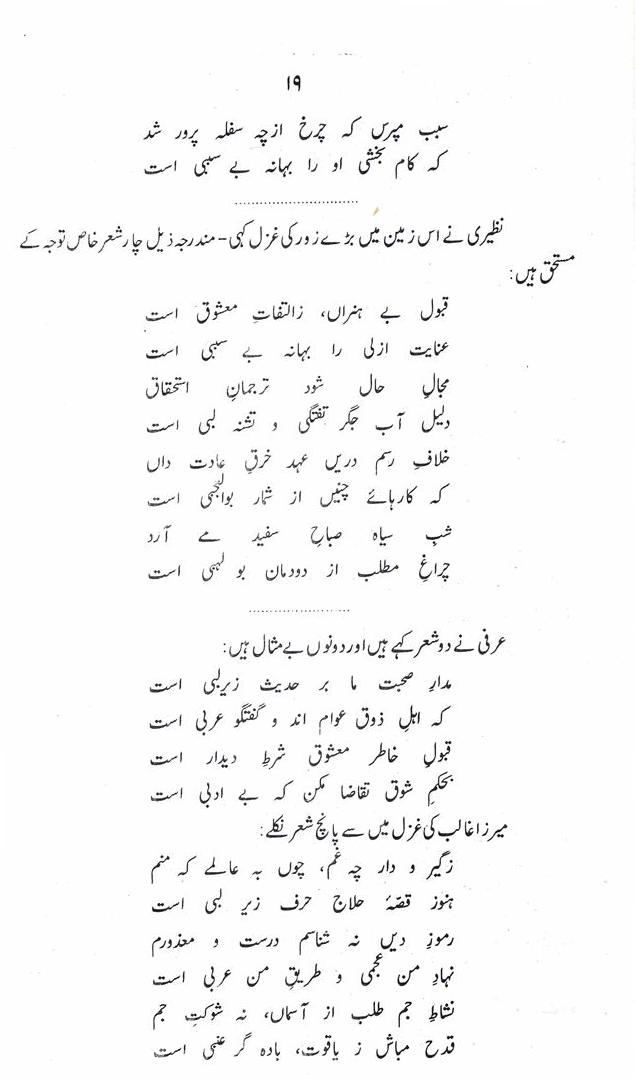 ۱۹
سبب مپرس کہ چرخ ازچہ سفلہ پرور شد
کہ کام بخشی او را بہانہ بے سببی است
نظیری نے اس زمین میں بڑے زور کی غزل کہی - مندرجہ ذیل چار شعر خاص توجہ کے
مستحق ہیں:
قبول بے ہنراں، زالتفاتِ معشوق است
عنایت ازلی را بہانہ بے سببی است
مجالِ حال شود ترجمانِ استحقاق
دلیل آب جگر تفتگی و تشنہ لبی است
خلافِ رسم دریں عہد خرقِ عادت داں
کہ کارہائے چنیں از شمار بوالعجبی است
شبِ سیاہ صباحِ سفید مے آرد
چراغِ مطلب از دودمان بو لہبی است
عرفی نے دو شعر کہے ہیں اور دونوں بے مثال ہیں:
مدارِ صحبت ما بر حدیث زیرلبی است
کہ اہلِ ذوق عوام اند و گفتگو عربی است
قبولِ خاطر معشوق شرطِ دیدار است
بحکمِ شوق تقاضا مکن کہ بے ادبی است
میرزا غالب کی غزل میں سے پانچ شعر نکلے:
زگیر و دار چہ غم، چوں بہ عالمے کہ منم
ہنوز قصّۂ حلاج حرف زیرِ لبی است
رموزِ دیں نہ شناسم درست و معذورم
نہادِ من عجمی و طریقِ من عربی است
نشاطِ جم طلب از آسماں، نہ شوکتِ جم
قدح مباش ز یاقوت، بادہ گر عنبی است